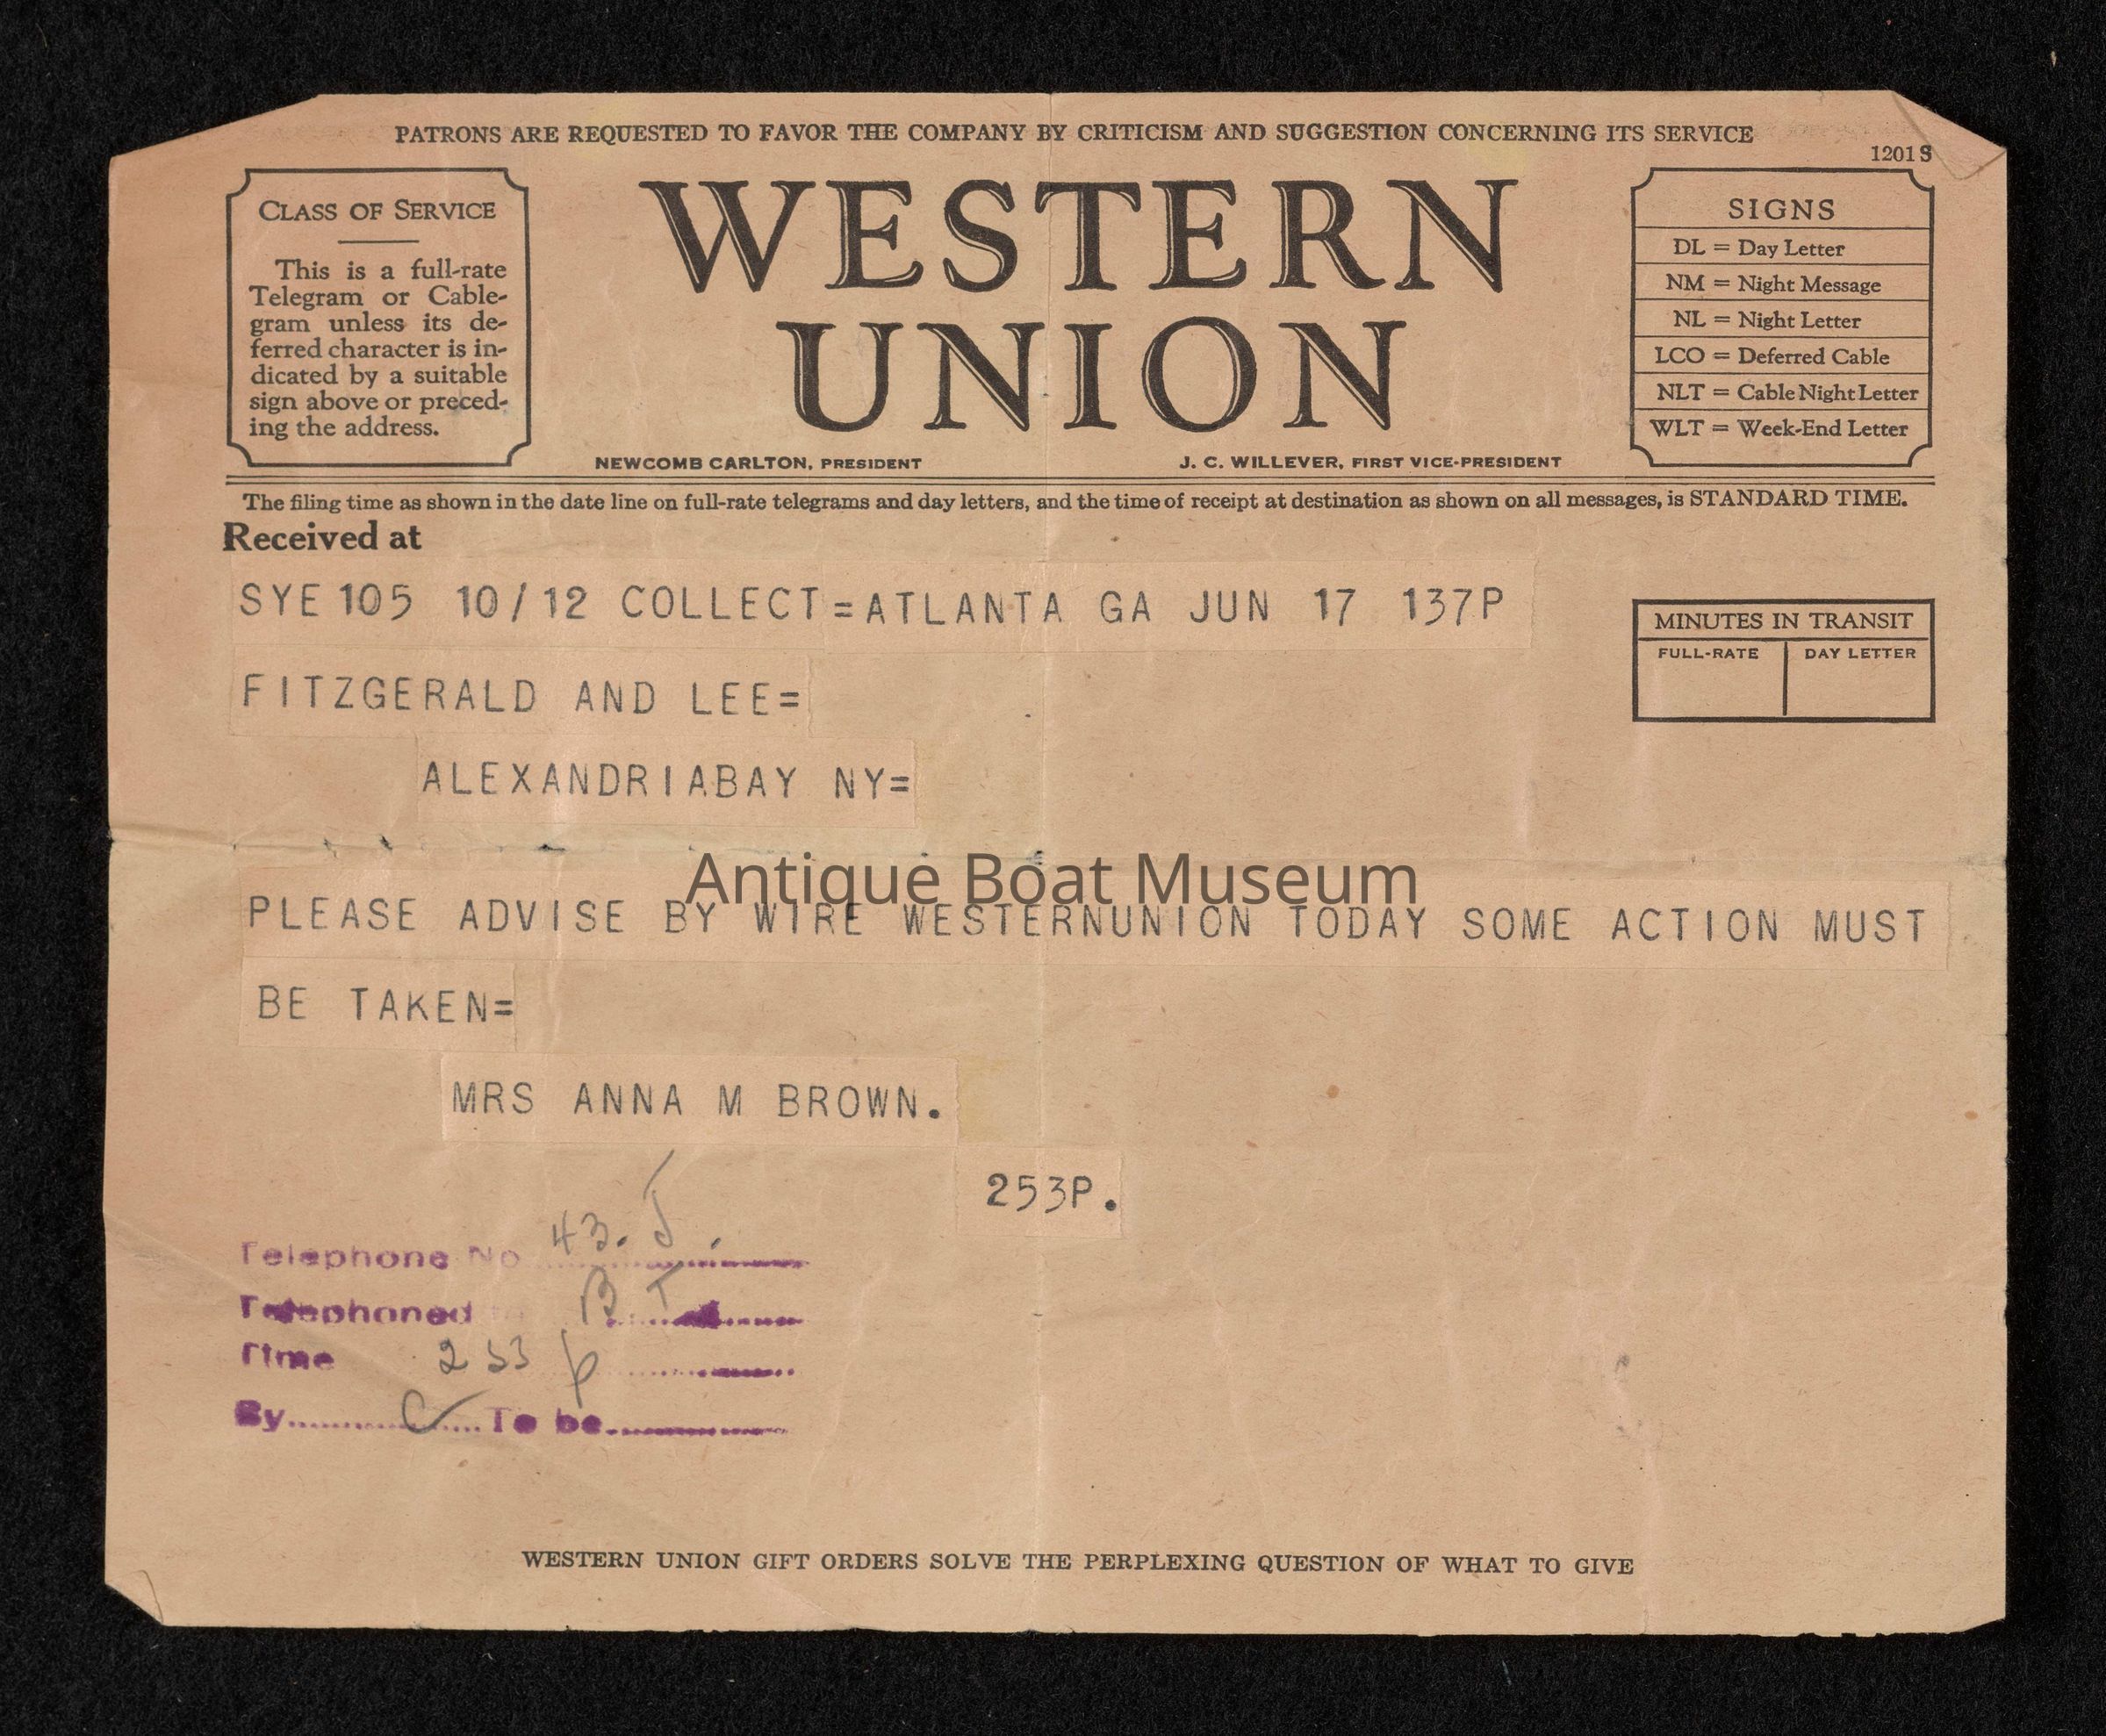 PATRONS ARE REQUESTED TO FAVOR THE COMPANY BY CRITICISM AND SUGGESTION CONCERNING ITS SERVICE
1201S
CLASS OF SERVICE
This is a full-rate
Telegram or Cable-
gram unless its de-
ferred character is in-
dicated by a suitable
sign above or preced-
ing the address.
WESTERN
UNION
NEWCOMB CARLTON, PRESIDENT
J. C. WILLEVER, FIRST VICE-PRESIDENT
SIGNS
DL = Day Letter
NM = Night Message
NL = Night Letter
LCO = Deferred Cable
NLT = Cable Night Letter
WLT = Week-End Letter
The filing time as shown in the date line on full-rate telegrams and day letters, and the time of receipt at destination as shown on all messages, is STANDARD TIME.
Received at
SYE105 10/12 COLLECT=ATLANTA GA JUN 17 137P
MINUTES IN TRANSIT
FULL-RATE DAY LETTER
FITZGERALD AND LEE=
ALEXANDRIABAY NY=
Antique Boat Museum
PLEASE ADVISE BY WIRE WESTERNUNION TODAY SOME ACTION MUST
BE TAKEN=
MRS ANNA M BROWN.
253P.
Telephone No 43. J.
Telephoned B T
Time 253 p
By C To be
WESTERN UNION GIFT ORDERS SOLVE THE PERPLEXING QUESTION OF WHAT TO GIVE